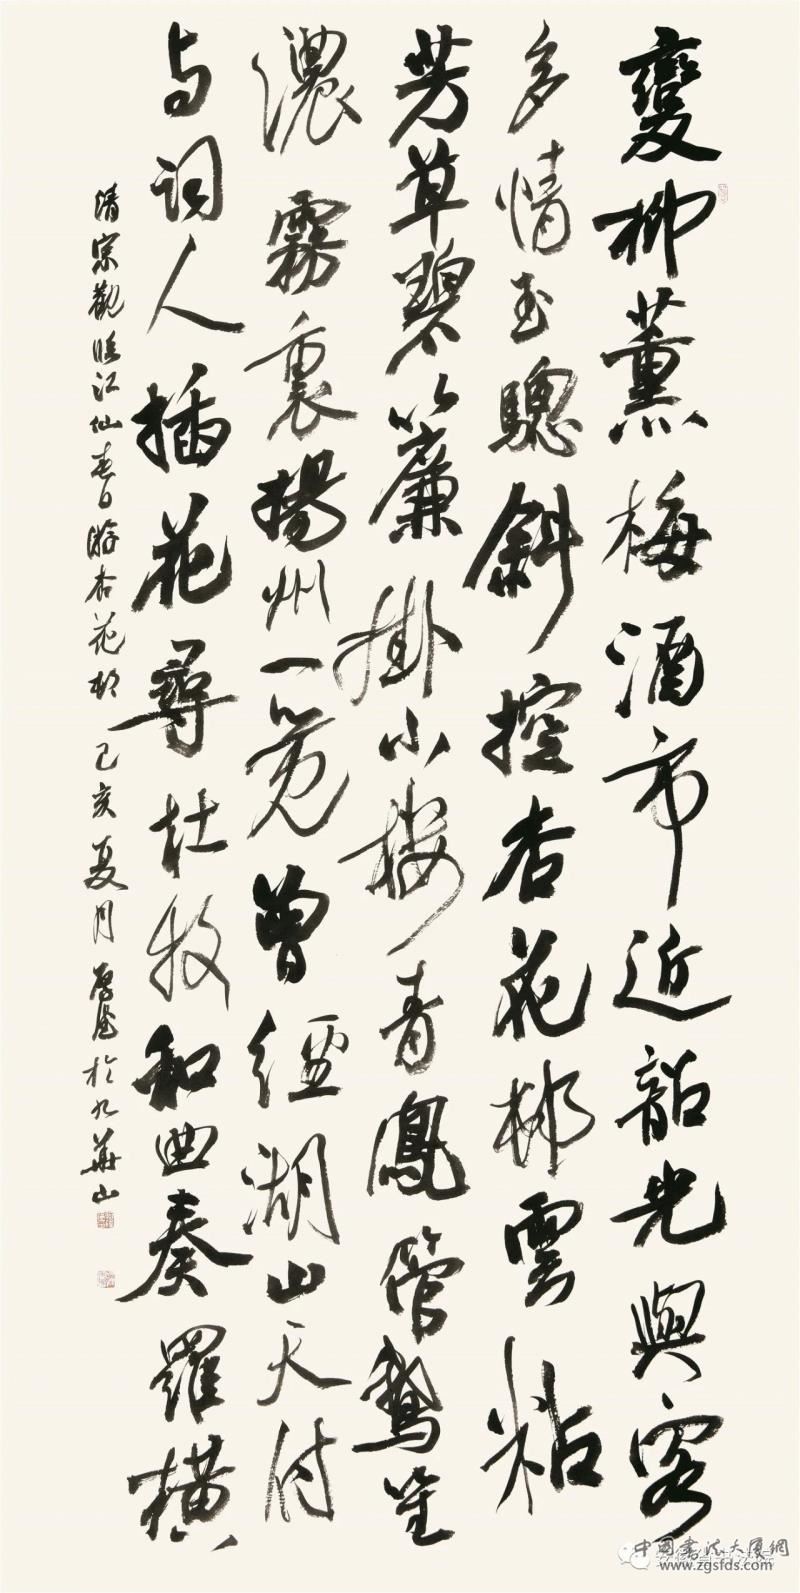 變柳薰梅酒市近韶光與客
多情玉驄斜控杏花邨雲粘
芳草碧簾掛小樓青鳳管鵝笙
濃霧裏揚州一覺曾經湖山天付
与詞人插花尋杜牧和曲奏羅橫
清宗觀臨江仙春日游杏花邨己亥夏月於九華山
中國書法大廈網
www.zgsfds.com